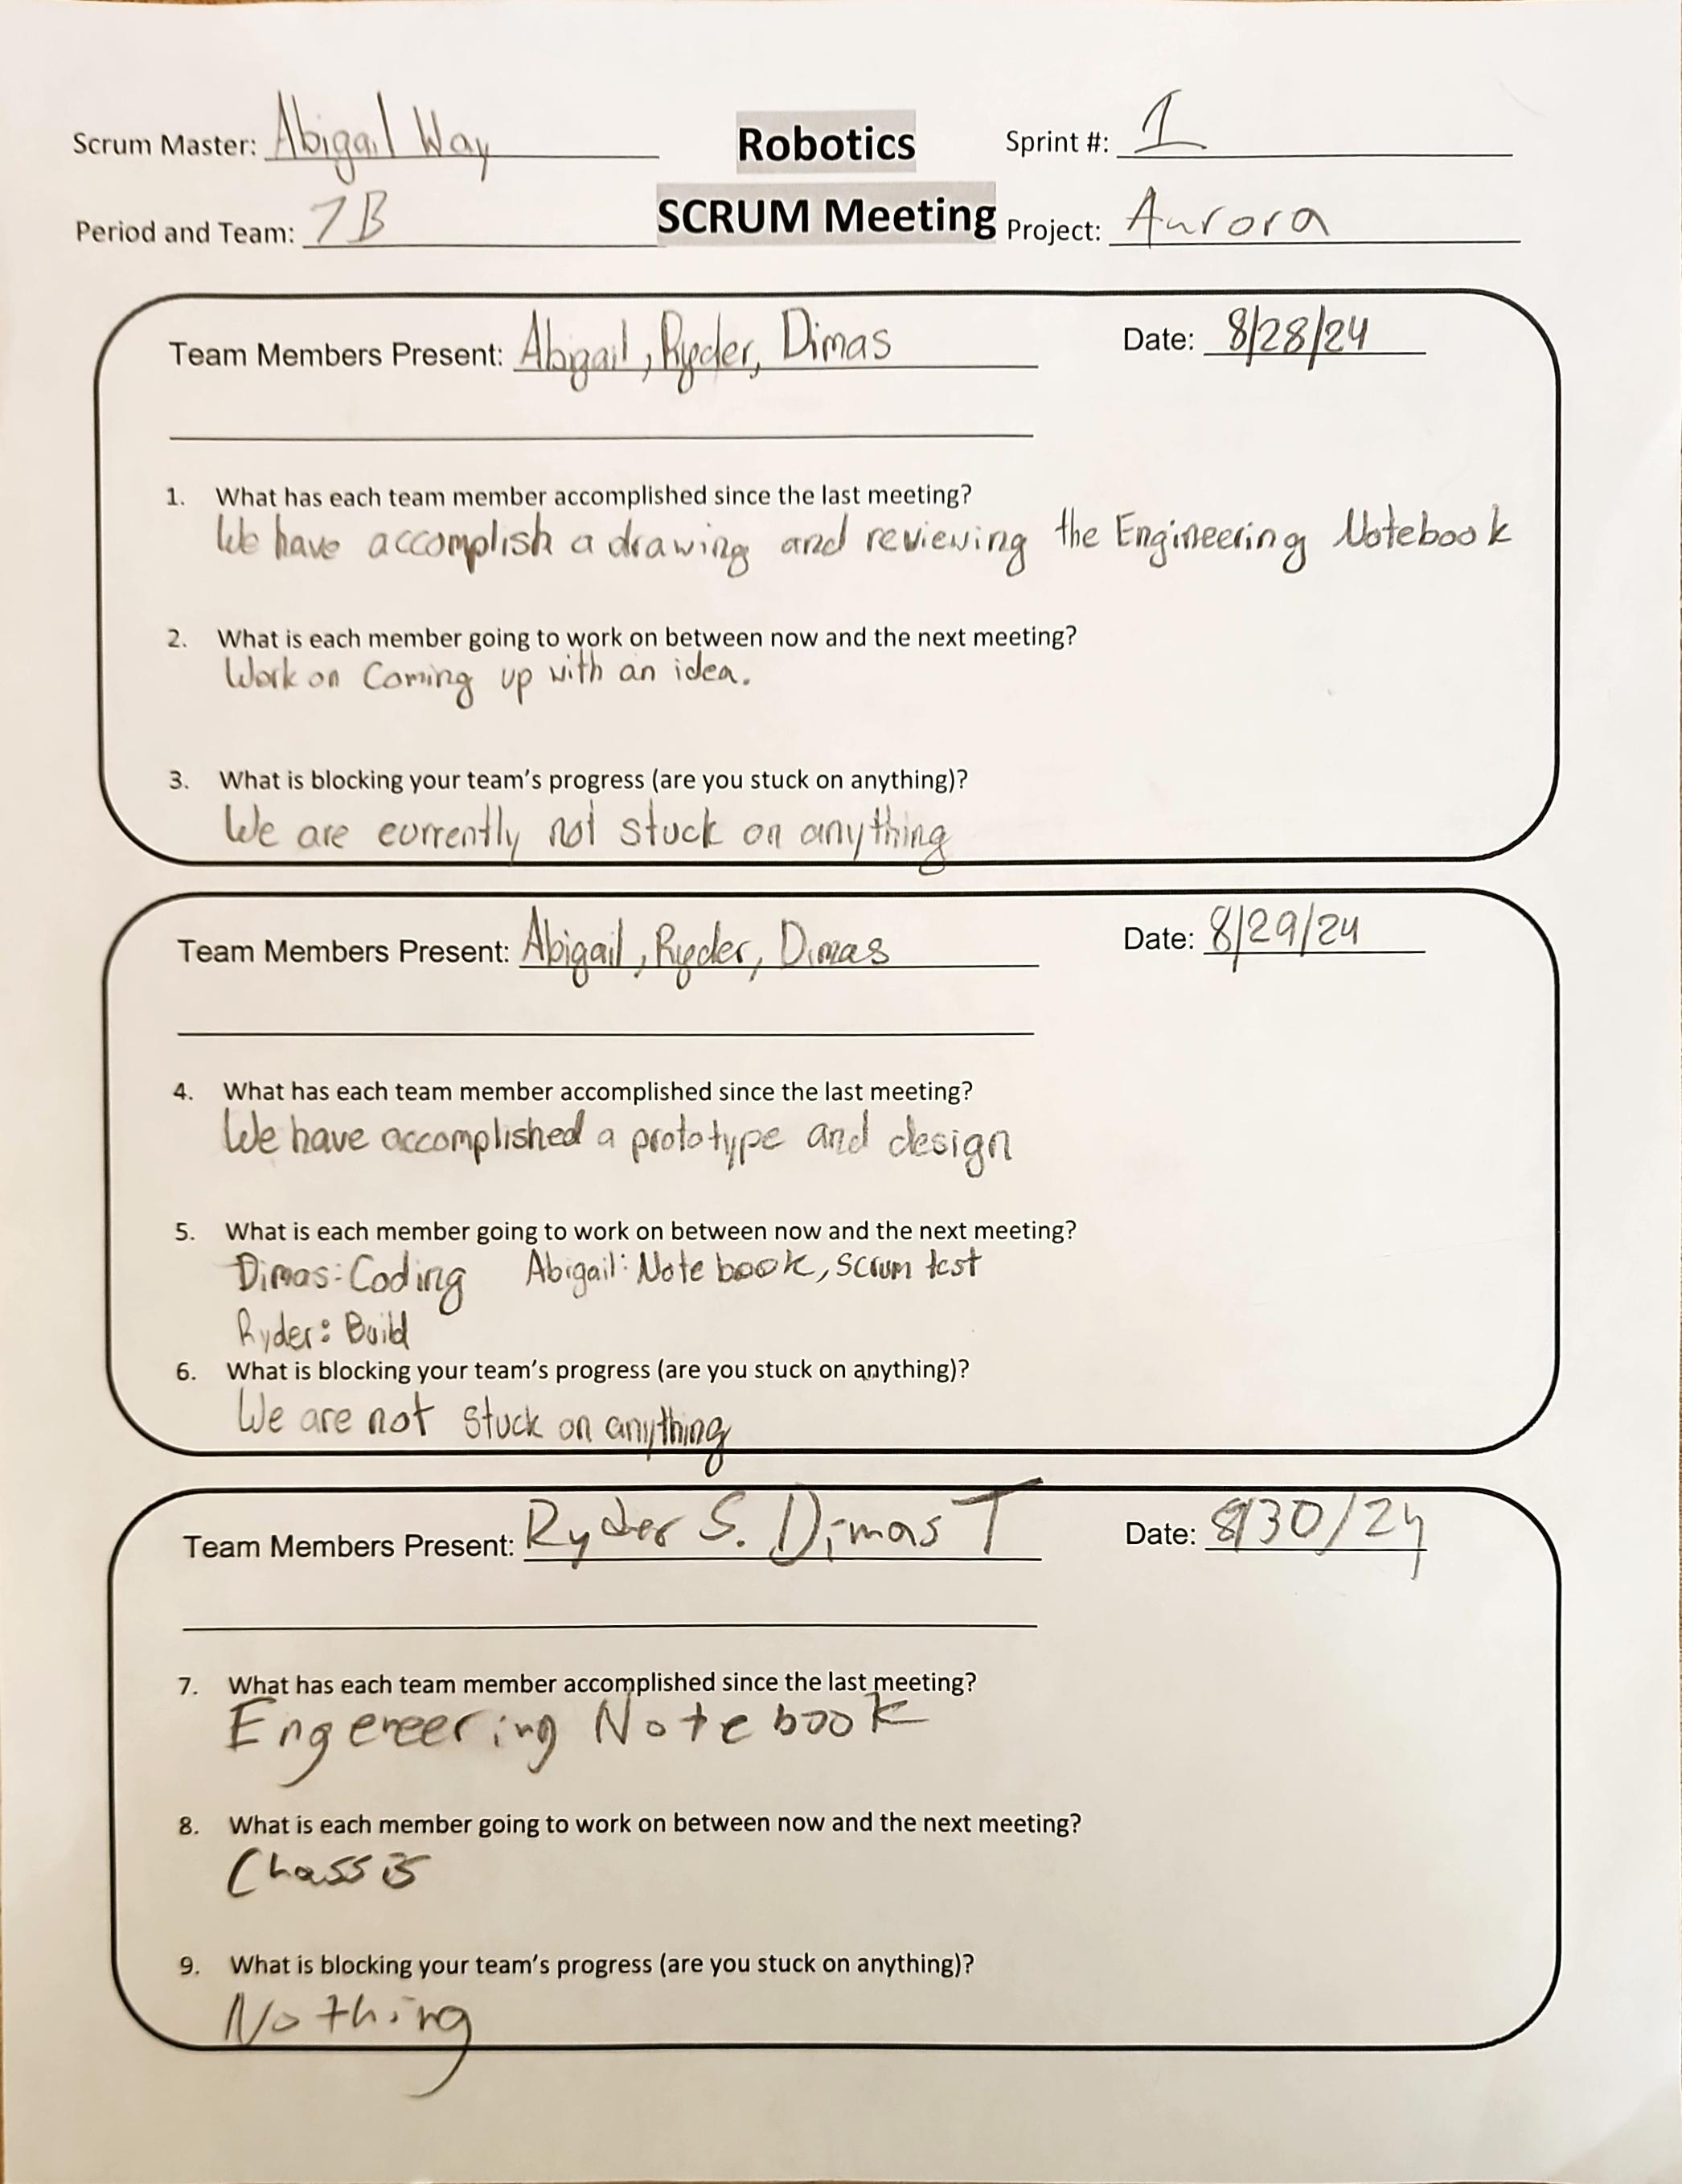 Scrum Master: Abigail Way
Robotics
Sprint #: 1
Period and Team: 7B
SCRUM Meeting
Project: Aurora
Team Members Present: Abigail, Ryder, Dimas
Date: 8/28/24
1. What has each team member accomplished since the last meeting?
We have accomplish a drawing and reviewing the Engineering Notebook
2. What is each member going to work on between now and the next meeting?
Work on Coming up with an idea.
3. What is blocking your team's progress (are you stuck on anything)?
We are currently not stuck on anything
Team Members Present: Abigail, Ryder, Dimas
Date: 8/29/24
4. What has each team member accomplished since the last meeting?
We have accomplished a prototype and design
5. What is each member going to work on between now and the next meeting?
Dimas: Coding Abigail: Notebook, Scrum test
Ryder: Build
6. What is blocking your team's progress (are you stuck on anything)?
We are not stuck on anything
Team Members Present: Ryder S. Dimas T
Date: 8/30/24
7. What has each team member accomplished since the last meeting?
Engeneering Notebook
8. What is each member going to work on between now and the next meeting?
Chassis
9. What is blocking your team's progress (are you stuck on anything)?
Nothing